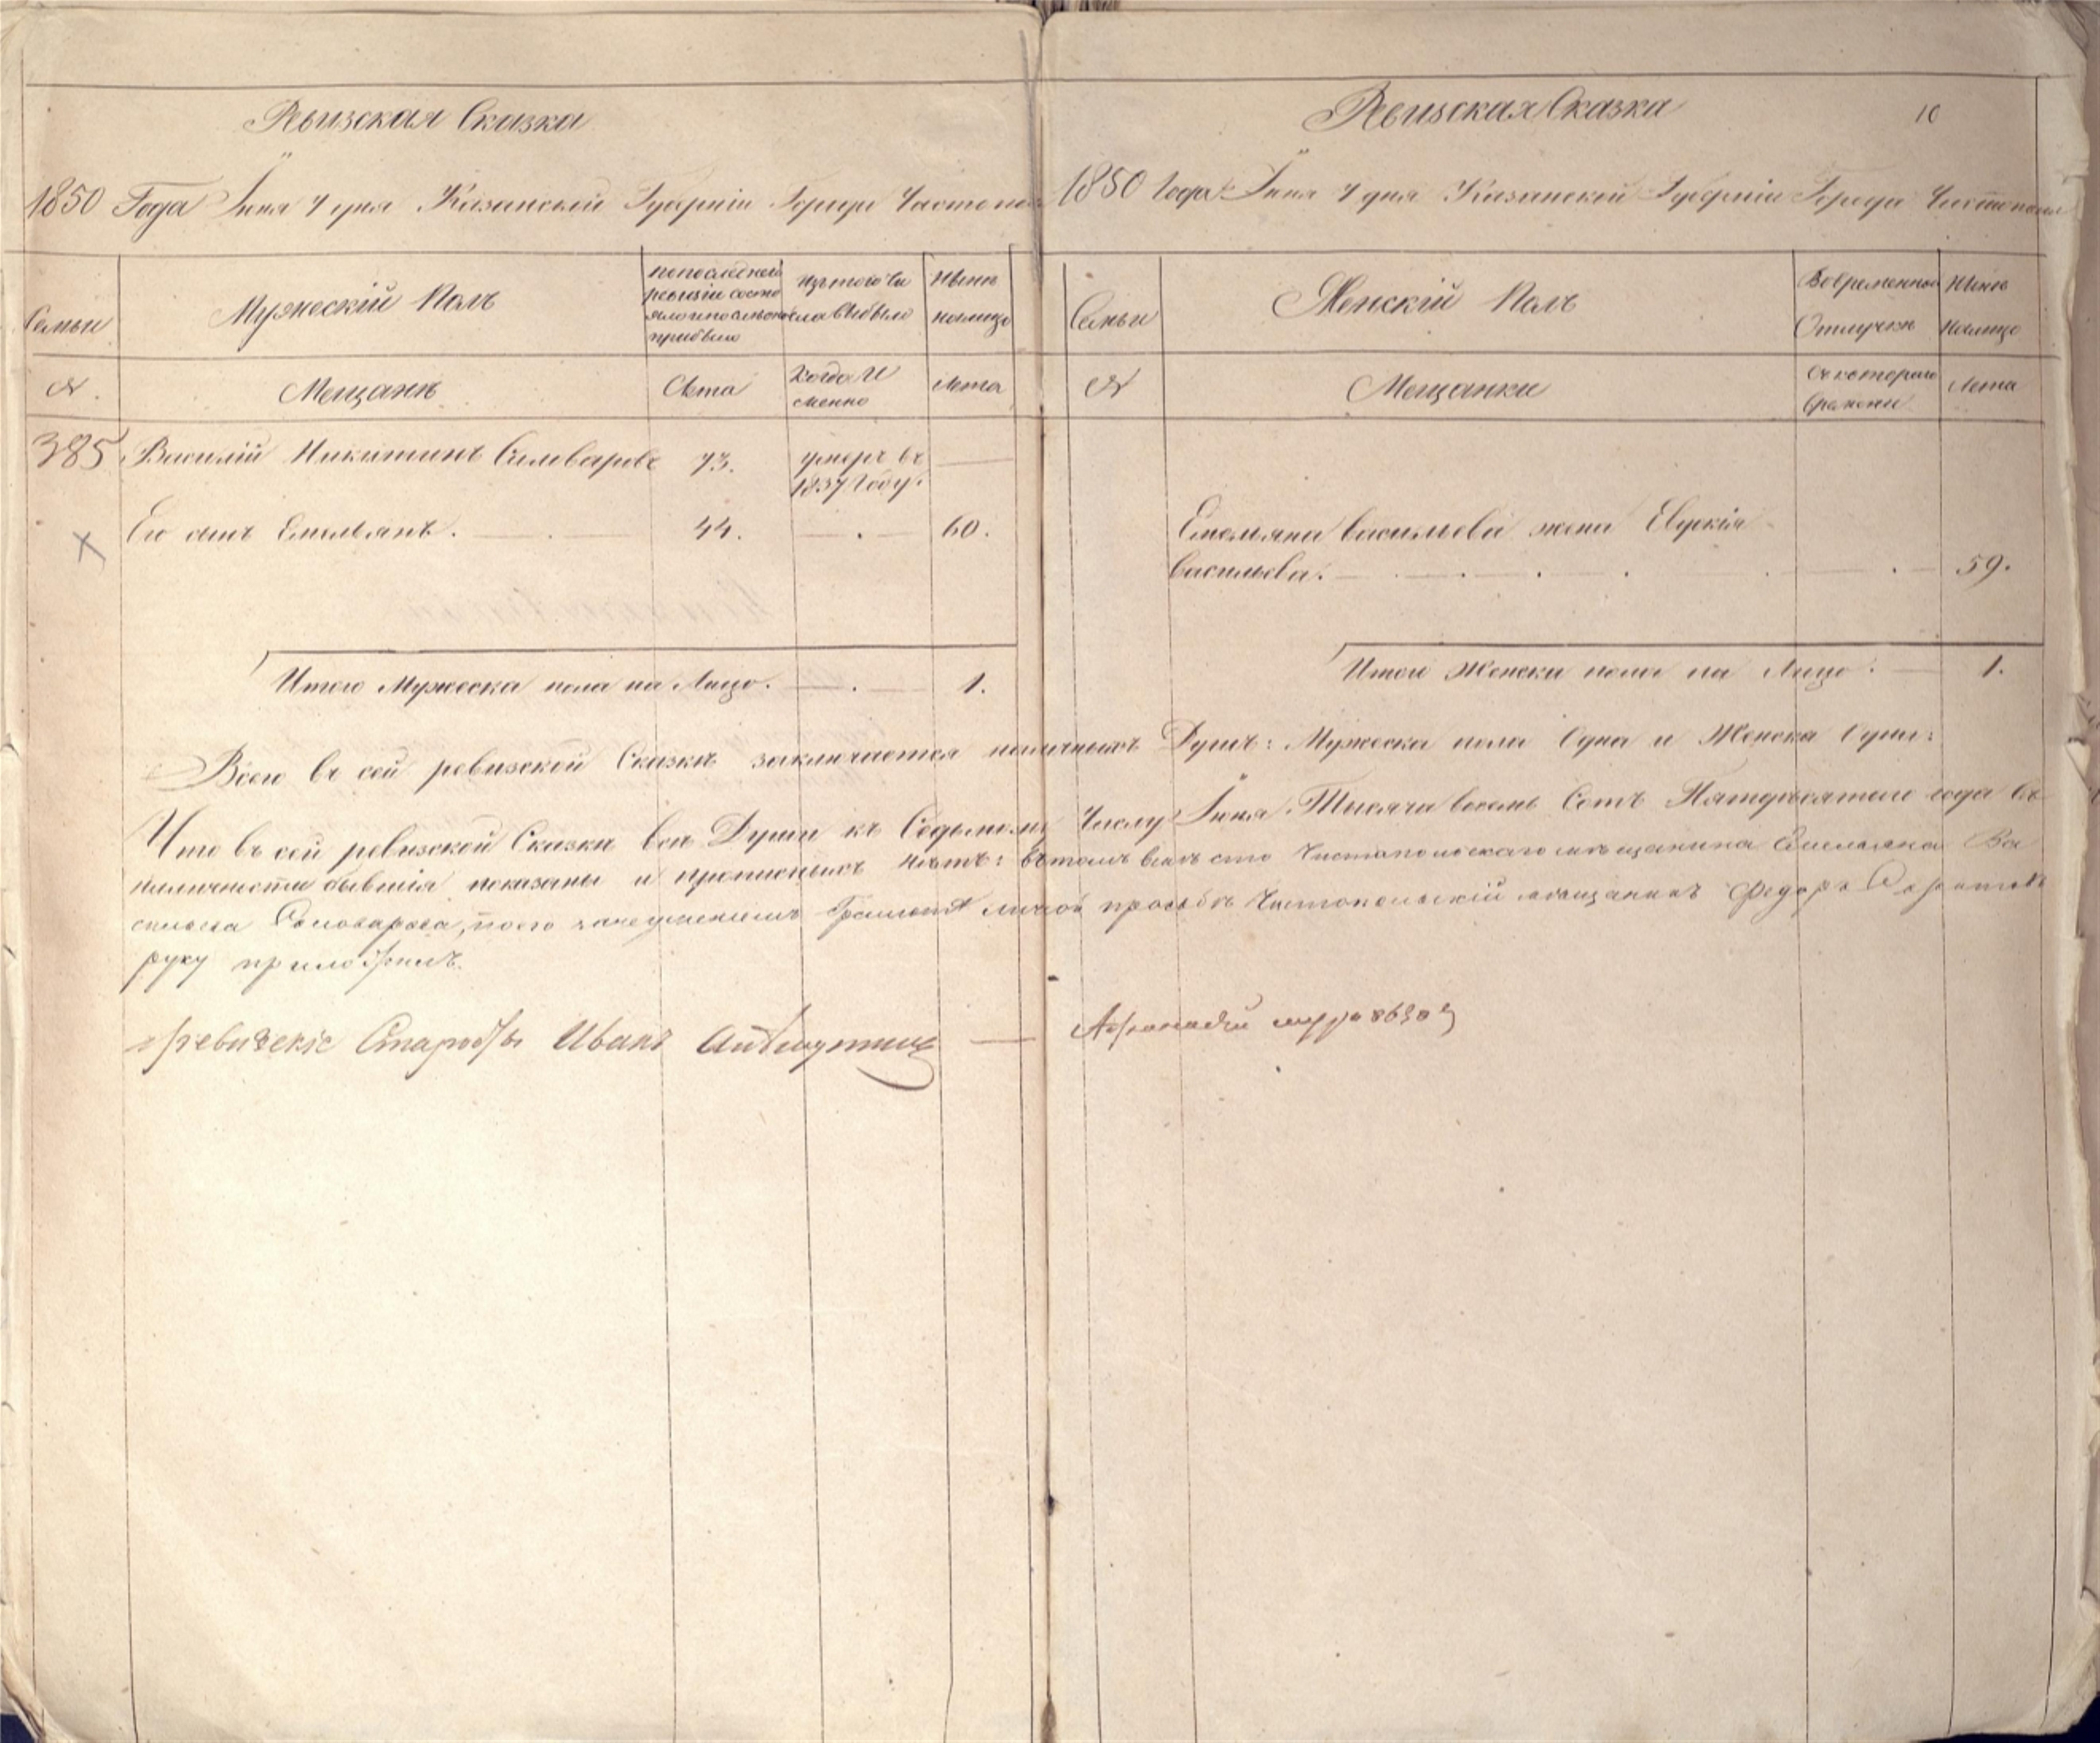 Ревизская Сказка
1850 Года Іюня 7 дня Казанской Губерніи Города Чистопо
Семьи
Мужескій Полъ
по последней
ревизіи состо
яло и после
прибыло
Изъ того чи
сла выбыло
Нынѣ
на лицо
№.
Мещанѣ
Лѣта
Когда И
менно
Лѣта
385
Василій Никитинъ
73.
умеръ въ
1837 Году.
Его сынъ Емельянъ.
44.
60.
Итого Мужеска пола на Лицо.
1.
Ревизская Сказка
10
1850 Года Іюня 7 дня Казанской Губерніи Города Чистополя
Семьи
Женскій Полъ
Во временной
Отлучкѣ
Нынѣ
на лицо
№
Мещанки
Съ котораго
времени
Лѣта
Емельяна Васильева жена Евдокія
Васильева.
59.
Итого Женска пола на Лицо.
1.
Всего въ сей ревизской Сказкѣ заключается наличныхъ Душъ: Мужеска пола Одна и Женска Одна:
Что въ сей ревизской Сказкѣ всѣ Души къ Седьмому Числу Іюня Тысяча восемь Сотъ Пятидесятого года въ
наличности бывшія показаны и прописныхъ нѣтъ: въ томъ вмѣсто Чистопольскаго мѣщанина Емельяна Ва
сильева Самоварова, по его неумению Грамотѣ личной прозьбѣ Чистопольскій мѣщанинъ Федоръ
руку приложилъ.
Староста Иванъ